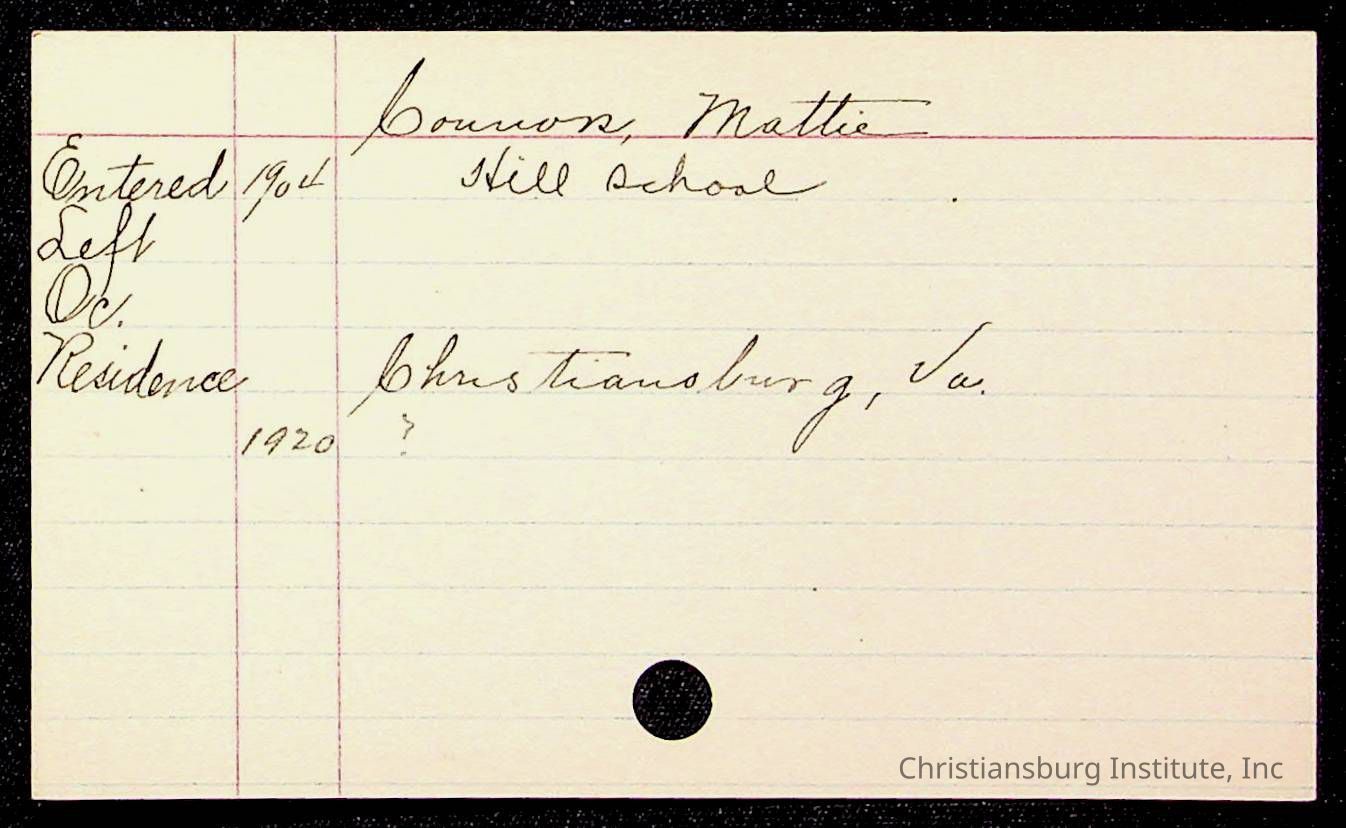 Connors, Mattie
Entered 1904 Hill School
Left
Oc.
Residence Christiansburg, Va.
1920 ?
Christiansburg Institute, Inc